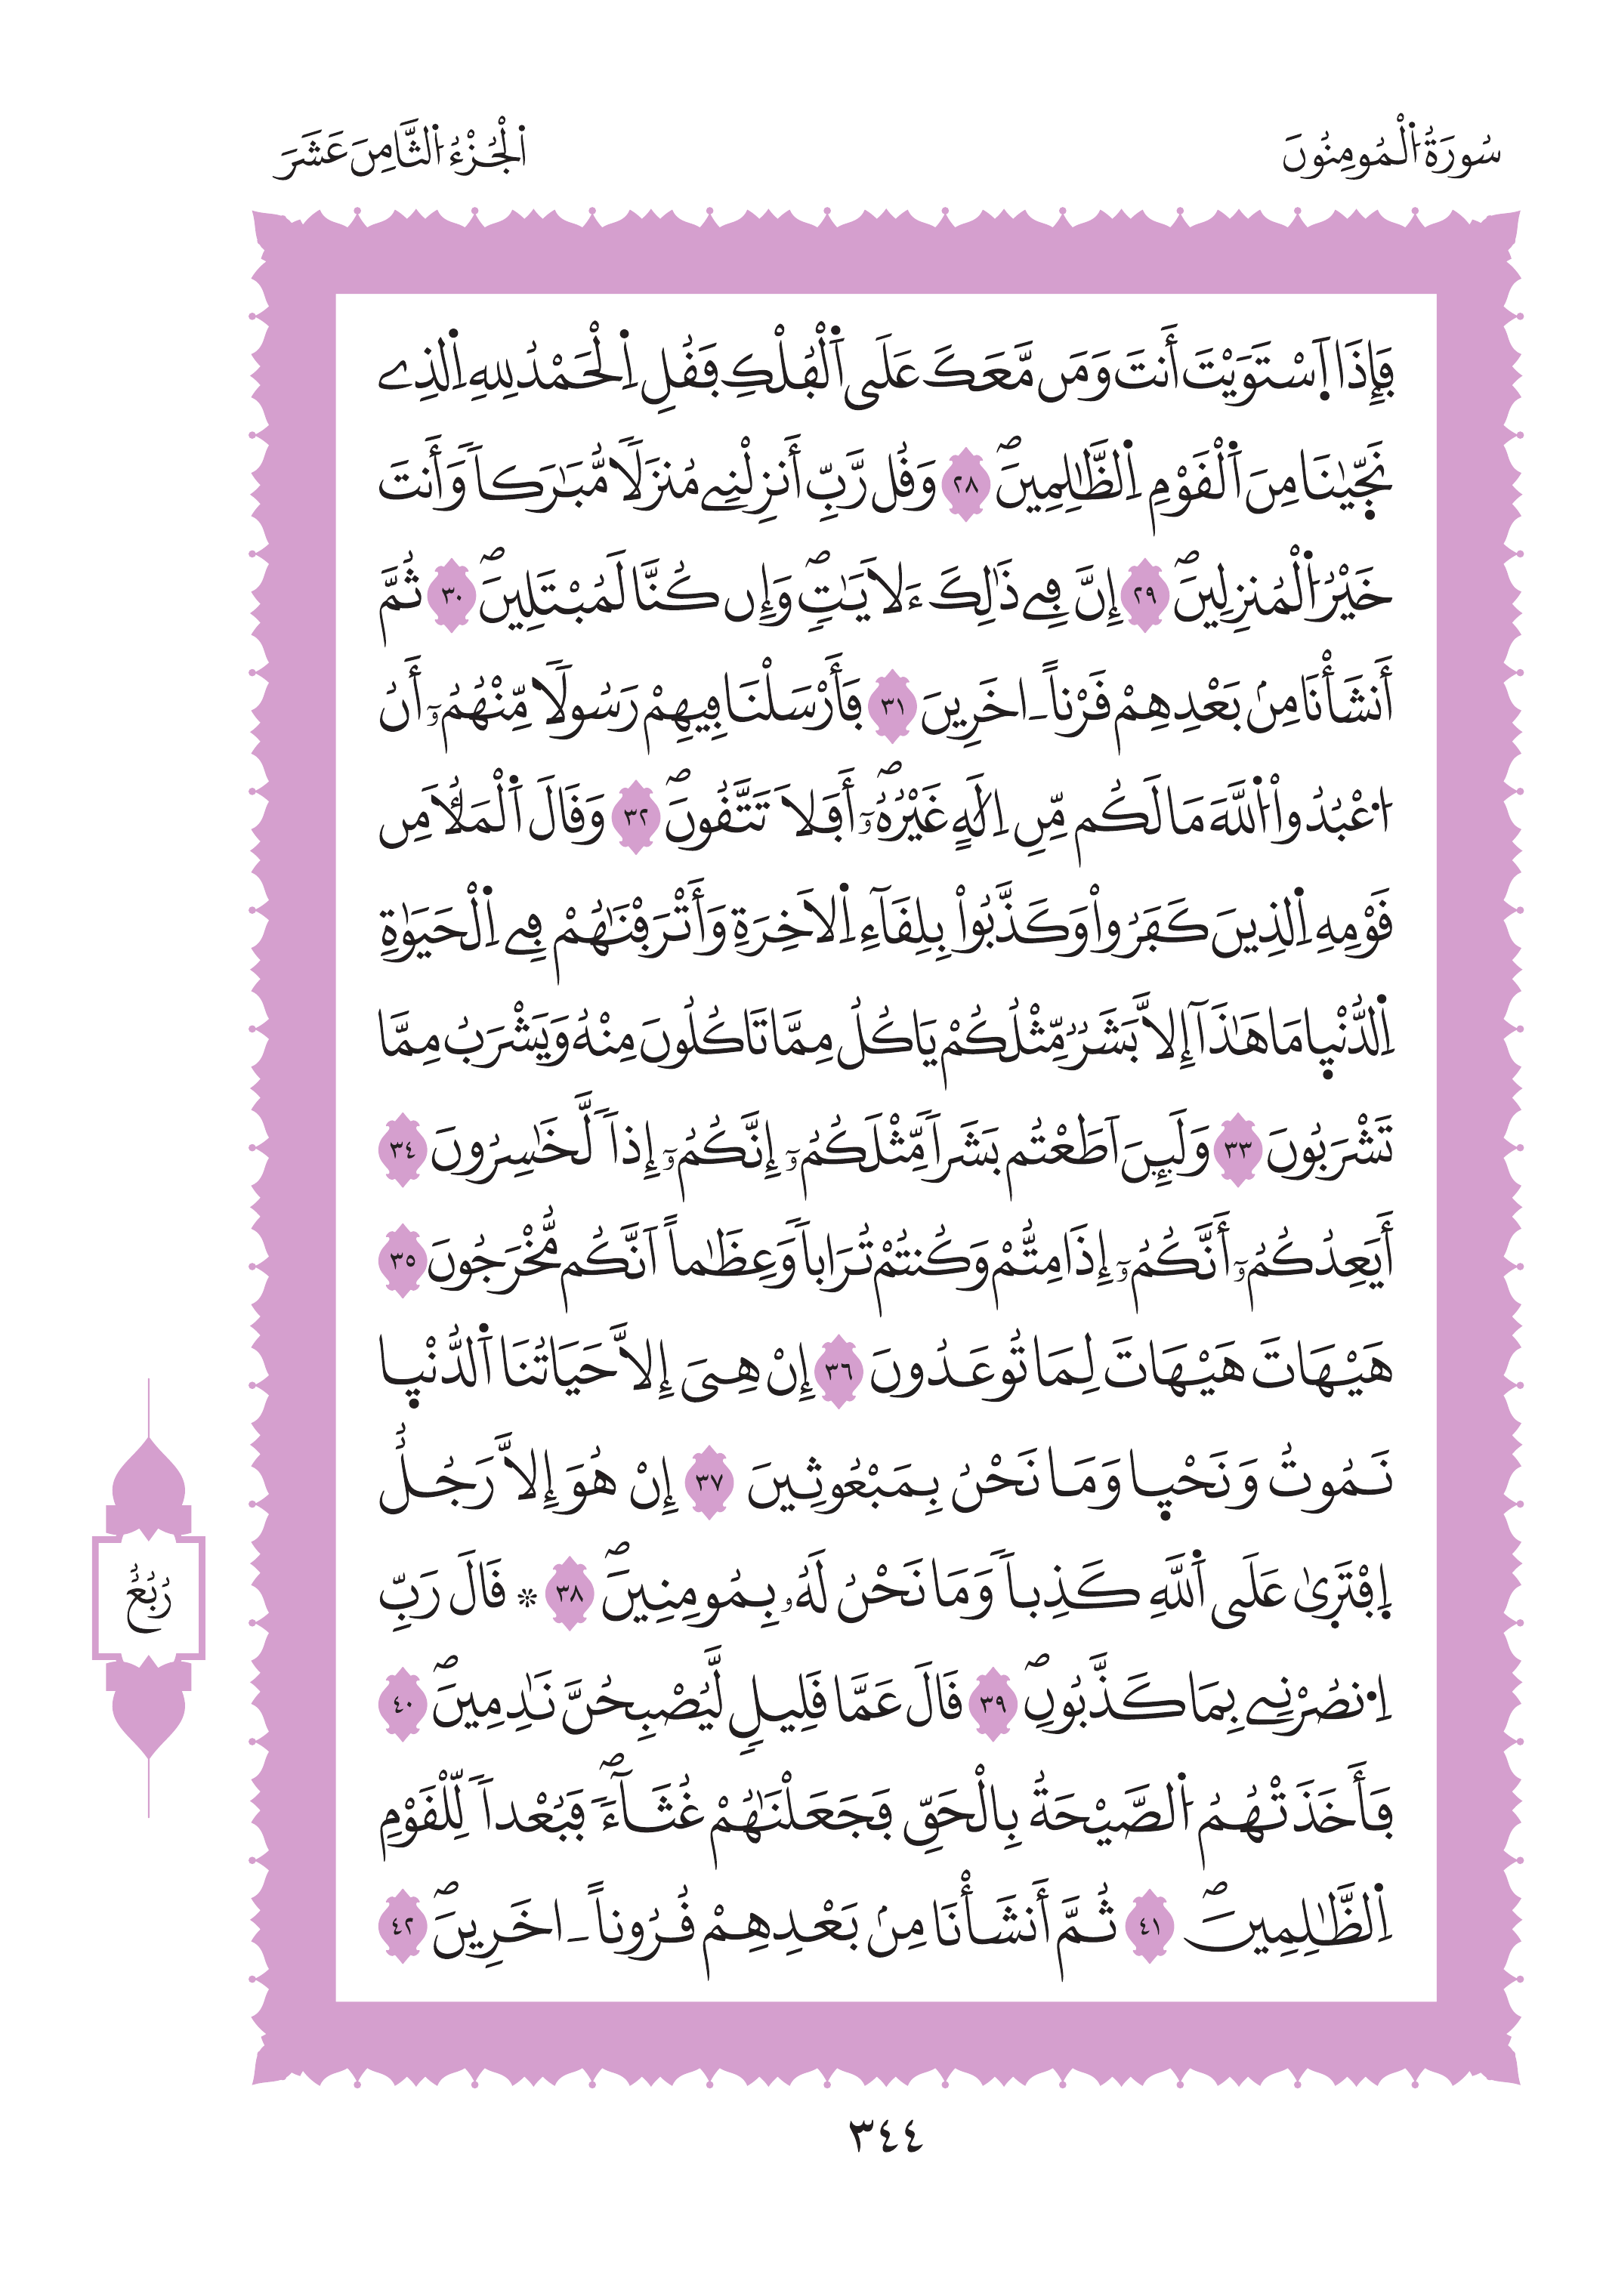 سُورَةُ اُ۬لْمُومِنُونَ
اَ۬لْجُزْءُ اُ۬لثَّامِنَ عَشَرَ
فَإِذَا اَ۪سْتَوَيْتَ أَنتَ وَمَن مَّعَكَ عَلَى اَ۬لْفُلْكِ فَقُلِ اِ۬لْحَمْدُ لِلهِ اِ۬لذِے
نَجّ۪يٰنَا مِنَ اَ۬لْقَوْمِ اِ۬لظَّٰلِمِينَۖ ٢٨ وَقُل رَّبِّ أَنزِلْنِے مُنزَلاٗ مُّبَٰرَكاٗ وَأَنتَ
خَيْرُ اُ۬لْمُنزِلِينَۖ ٢٩ إِنَّ فِے ذَٰلِكَ ءَلَايَٰتٖۖ وَإِن كُنَّا لَمُبْتَلِينَۖ ٣٠ ثُمَّ
أَنشَأْنَا مِنۢ بَعْدِهِمْ قَرْناً ـ اخَرِينَ ٣١ فَأَرْسَلْنَا فِيهِمْ رَسُولاٗ مِّنْهُمُۥٓ أَنُ
اُ۟عْبُدُواْ اُ۬للَّهَ مَا لَكُم مِّنِ اِلَٰهٍ غَيْرُهُۥٓۖ أَفَلَا تَتَّقُونَۖ ٣٢ وَقَالَ اَ۬لْمَلَأُ مِن
قَوْمِهِ اِ۬لذِينَ كَفَرُواْ وَكَذَّبُواْ بِلِقَآءِ اِ۬لَاخِرَةِ وَأَتْرَفْنَٰهُمْ فِے اِ۬لْحَيَوٰةِ
اِ۬لدُّنْي۪ا مَا هَٰذَآ إِلَّا بَشَرٞ مِّثْلُكُمْ يَاكُلُ مِمَّا تَاكُلُونَ مِنْهُ وَيَشْرَبُ مِمَّا
تَشْرَبُونَ ٣٣ وَلَئِنَ اَطَعْتُم بَشَراٗ مِّثْلَكُمُۥٓ إِنَّكُمُۥٓ إِذاٗ لَّخَٰسِرُونَ ٣٤
أَيَعِدُكُمُۥٓ أَنَّكُمُۥٓ إِذَا مِتُّمْ وَكُنتُمْ تُرَاباٗ وَعِظَٰماً اَنَّكُم مُّخْرَجُونَ ٣٥
هَيْهَاتَ هَيْهَاتَ لِمَا تُوعَدُونَ ٣٦ إِنْ هِىَ إِلَّا حَيَاتُنَا اَ۬لدُّنْي۪ا
نَمُوتُ وَنَحْي۪ا وَمَا نَحْنُ بِمَبْعُوثِينَ ٣٧ إِنْ هُوَ إِلَّا رَجُلٌ
اِ۪فْتَر۪ىٰ عَلَى اَ۬للَّهِ كَذِباٗ وَمَا نَحْنُ لَهُۥ بِمُومِنِينَۖ ٣٨ ۞ قَالَ رَبِّ
اِ۟نصُرْنِے بِمَا كَذَّبُونِۖ ٣٩ قَالَ عَمَّا قَلِيلٖ لَّيُصْبِحُنَّ نَٰدِمِينَۖ ٤٠
فَأَخَذَتْهُمُ اُ۬لصَّيْحَةُ بِالْحَقِّ فَجَعَلْنَٰهُمْ غُثَآءٗۖ فَبُعْداٗ لِّلْقَوْمِ
اِ۬لظَّٰلِمِينَۖ ٤١ ثُمَّ أَنشَأْنَا مِنۢ بَعْدِهِمْ قُرُوناً ـ اخَرِينَۖ ٤٢
رُبُعُ
٣٤٤